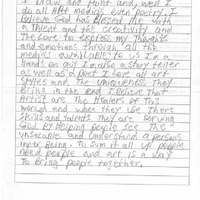 I Draw and Paint and, well I
do all Art media's even Poetry. I
believe God has Blessed me with
a Talent and the creativity and
The Love to express my Thoughts
and emotions through all the
medias available to us I'm a
hands on guy I'm also a story teller
as well as a Poet I Love all art
styles and The uniqueness They
Bring in the end I Believe that
Artist are The Healers of This
world and when They use There
skills and Talents They are serving
God By Helping people see The
unseeable and understand a persons
inner Being. To sum it all up people
need people and art is a way
To Bring people together.